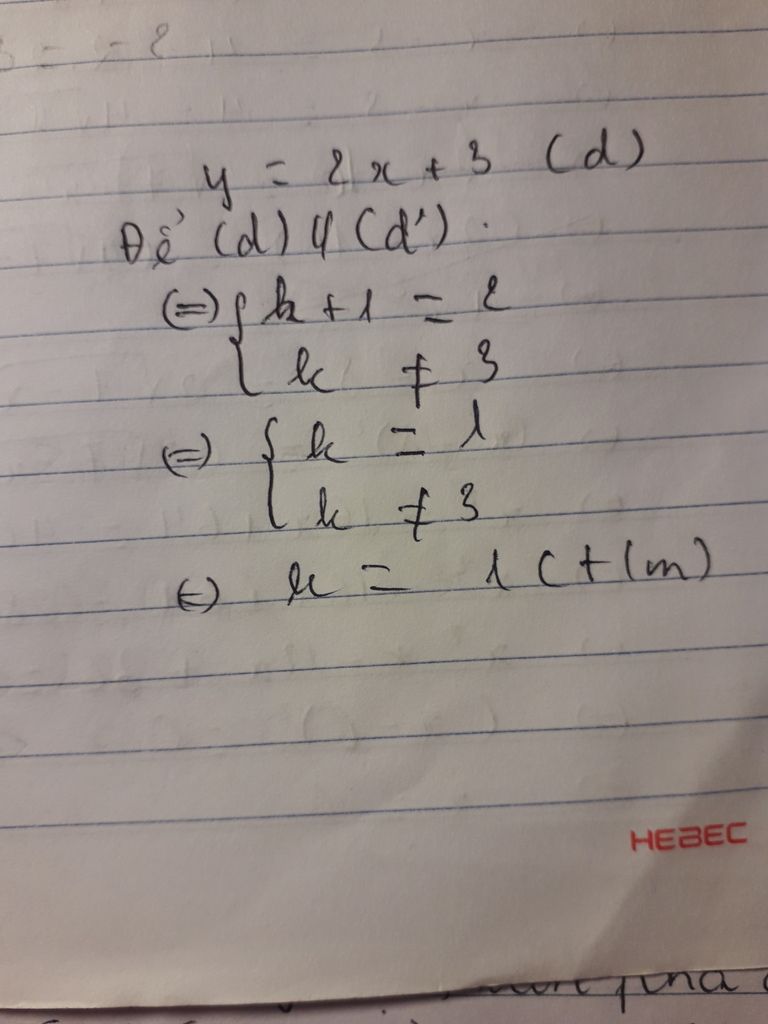 y = 2x + 3 (d)
Để (d) // (d').
(=) { k + 1 = 2
k ≠ 3
(=) { k = 1
k ≠ 3
(=) k = 1 (t/m)
HEBEC